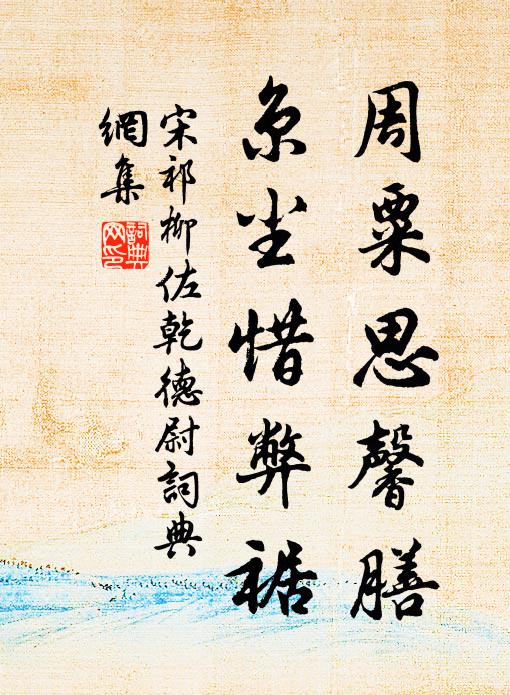 周粟思馨膳
京尘惜弊裾
宋祁柳佐乾德尉詞典
網集
詞典网印